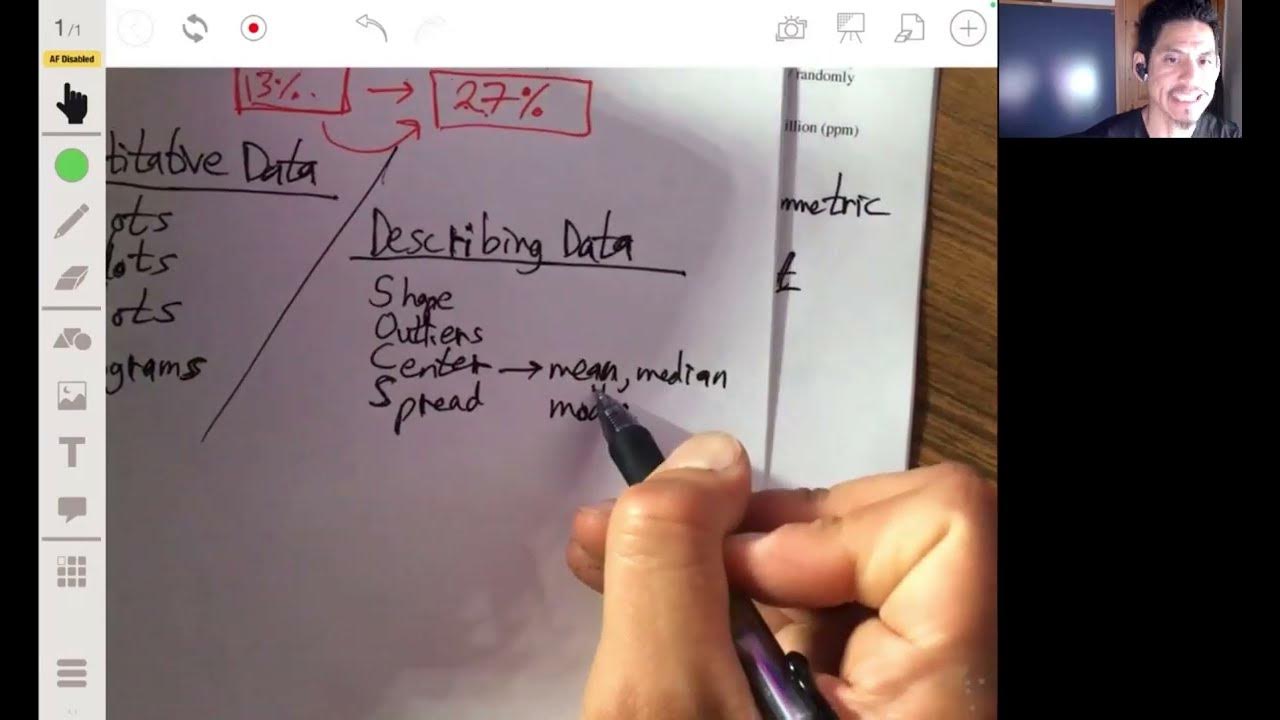 1/1
AF Disabled
13%. → 27%
randomly
illion (ppm)
titative Data
mmetric
ots
Describing Data
lots
t
Shape
ots
Outliers
grams
Center → mean, median
Spread
T